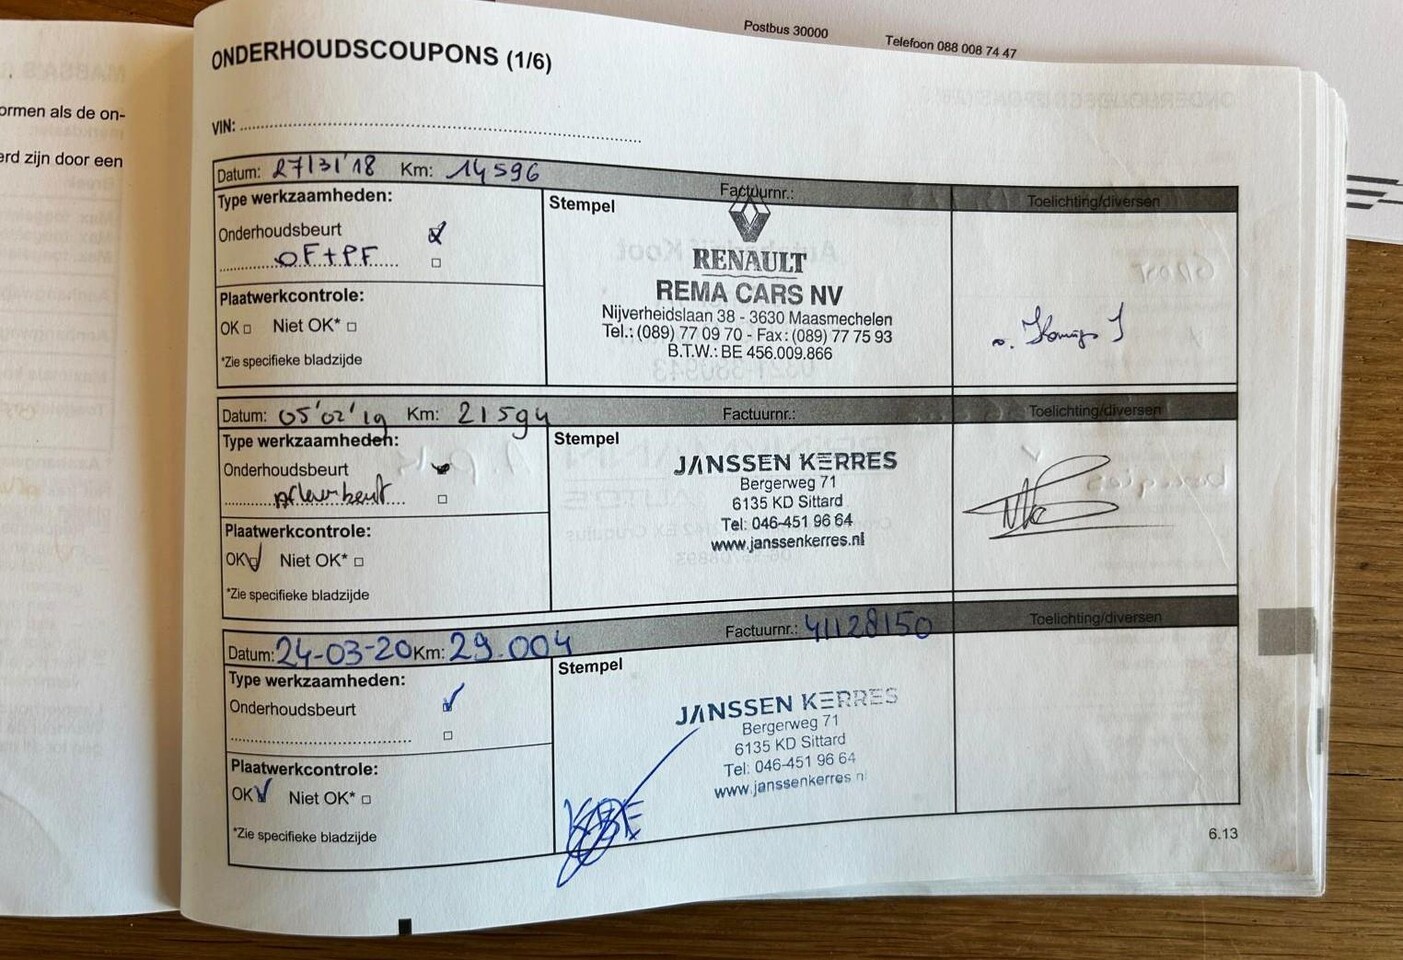 Postbus 30000
Telefoon 088 008 74 47
ormen als de on-
erd zijn door een
ONDERHOUDSCOUPONS (1/6)
VIN:
Datum: 27/3/'18 Km: 14596 Factuurnr.: Toelichting/diversen
Type werkzaamheden:
Stempel
Onderhoudsbeurt
OF+PF
RENAULT
REMA CARS NV
Nijverheidslaan 38 - 3630 Maasmechelen
Tel.: (089) 77 09 70 - Fax: (089) 77 75 93
B.T.W.: BE 456.009.866
Plaatwerkcontrole:
OK Niet OK*
*Zie specifieke bladzijde
Datum: 05'02'19 Km: 21594 Factuurnr.: Toelichting/diversen
Type werkzaamheden:
Stempel
Onderhoudsbeurt
JANSSEN KERRES
Bergerweg 71
6135 KD Sittard
Tel: 046-451 96 64
www.janssenkerres.nl
Plaatwerkcontrole:
OK Niet OK*
*Zie specifieke bladzijde
Datum: 24-03-20 Km: 29.004 Factuurnr.: 41128150 Toelichting/diversen
Type werkzaamheden:
Stempel
Onderhoudsbeurt
JANSSEN KERRES
Bergerweg 71
6135 KD Sittard
Tel: 046-451 96 64
www.janssenkerres.nl
Plaatwerkcontrole:
OK Niet OK*
*Zie specifieke bladzijde
6.13